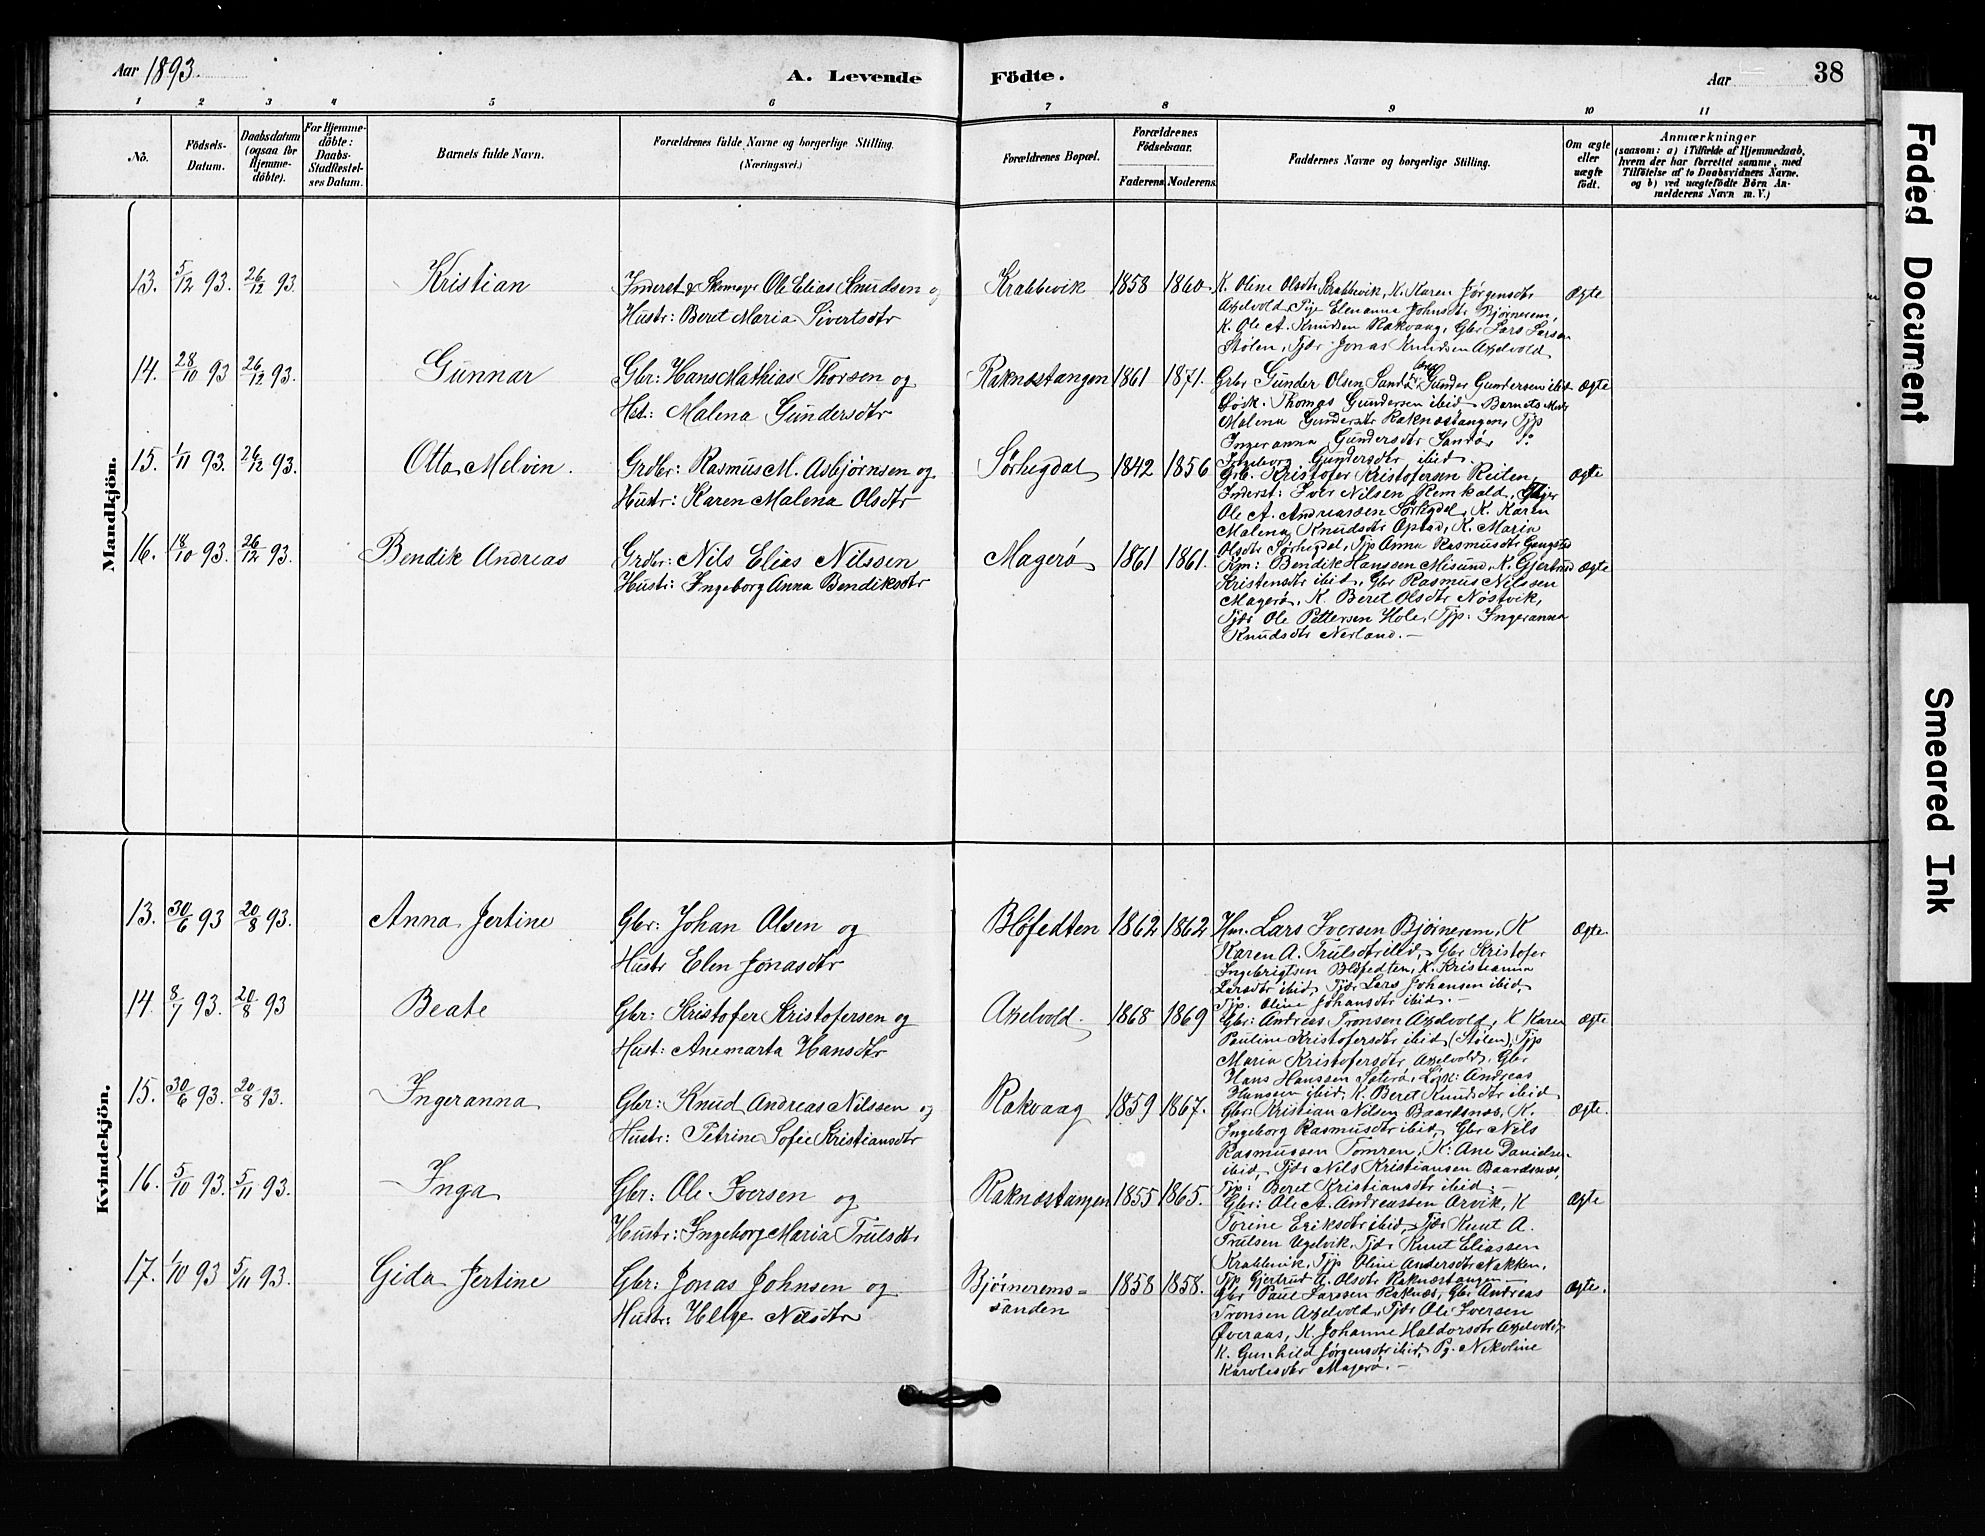 Aar 1893.
A. Levende Födte.
Aar
38
1 2 3 4 5 6 7 8 9 10 11
No.
Födsels-Datum.
Daabsdatum (ogsaa for Hjemme-döbte).
For Hjemme-döbte: Daabs-Stadfæstel-ses Datum.
Barnets fulde Navn.
Forældrenes fulde Navne og borgerlige Stilling.
(Næringsvei.)
Forældrenes Bopæl.
Forældrenes Födselsaar.
Faderens. Moderens.
Faddernes Navne og borgerlige Stilling.
Om ægte eller uægte födt.
Anmærkninger
(saasom: a) i Tilfælde af Hjemmedaab,
hvem der har forrettet samme, med
Tilföielse af to Daabsvidners Navne.
og b) ved uægtefödte Börn An-
melderens Navn m. V.)
Mandkjön.
13. 5/12 93. 26/12 93. Kristian
Inderst & Skomager Ole Elias Knudsen og
Hustr: Beret Maria Sivertsdtr
Krabbevik 1858 1860
K. Oline Olsdtr Krabbevik, K. Karen Jørgensdtr
Axelvold, Pige Elenanna Johnsdtr Bjørnerem,
K. Ole A. Knudsen Rakvaag, Gbr Lars Larsen
Stølen, Tjdr Jonas Knudsen Axelvold
Ægte
14. 28/10 93 26/12 93. Gunnar
Gbr: Hans Mathias Thorsen og
Hst: Malena Gundersdtr
Raknæstangen 1861 1871.
Grbr Gunder Olsen Sandø, Gunder Gundersen ibid
Løsk. Thomas Gundersen ibid, Barnets Moder
Malena Gundersdtr Raknæstangen, Tjp
Ingeranna Gundersdtr Sandø,
Ingeborg Gundersdtr ibid.
Ægte
15. 1/11 93. 26/12 93. Otto Melvin.
Grdbr: Rasmus M. Asbjørnsen og
Hustr: Karen Malena Olsdtr
Sørhegdal 1842 1856
Grb. Kristofer Kristofersen Reiten,
Inderst: Iver Nilsen Remkald,
Ole A. Andreassen Sørhegdal, K. Karen
Malena Knudsdtr Opstad, K. Maria
Olsdtr Sørhegdal, Tjp Anna Rasmusdtr
Ægte
16. 18/10 93. 26/12 93. Bendik Andreas
Grdbr: Nils Elias Nilssen
Hustr: Ingeborg Anna Bendiksdtr
Magerø 1861 1861.
Bendik Hanssen Misund, K. Gjertrud
Kristensdtr ibid, Gbr Rasmus Nilssen
Magerø, K. Beret Olsdtr Nøstvik,
Tjdr Ole Pettersen Hole, Tjp: Ingeranna
Knudsdtr Nerland. –
Ægte
Kvindekjön.
13. 30/6 93 20/8 93. Anna Jertine
Gbr: Johan Olsen og
Hustr Elen Jonasdtr
Blöfedten 1862 1862
Hm. Lars Iversen Bjørnerem, K
Karen A. Trulsdtr ibid, Gbr Kristofer
Ingebrigtsen Blöfedten, K. Kristianna
Larsdtr ibid, Tjdr Lars Johansen ibid,
Tjp. Oline Johansdtr ibid. –
Ægte
14. 8/7 93. 20/8 93 Beate
Gbr: Kristofer Kristofersen og
Hust: Anemarta Hansdtr
Axelvold. 1868 1869
Gbr: Andreas Tronsen Axelvold, K Karen
Pauline Kristofersdtr ibid (Stølen), Tjp
Maria Kristofersdtr Axelvold, Gbr
Hans Hanssen Sæterø, Løsk: Andreas
Hanssen ibid, K. Beret Knudsdtr ibid
Ægte
15. 30/6 93. 20/8 93. Ingeranna
Gbr: Knud Andreas Nilssen og
Hustr: Petrine Sofie Kristiansdtr
Rakvaag 1859 1867.
Gbr: Kristian Nilsen Baardsnæs, K.
Ingeborg Rasmusdtr ibid, Gbr Nils
Rasmussen Tomren, K: Ane Danielsen
ibid, Tjdr Nils Kristiansen Baardsnæs,
Tjp: Beret Kristiansdtr ibid. –
Ægte.
16. 5/10 93. 5/11 93. Inga
Gbr: Ole Iversen og
Hustr: Ingeborg Maria Trulsdtr
Raknæstangen 1855 1865.
Gbr: Ole A. Andreassen Arvik, K
Torine Eriksdtr ibid, Tjdr Knut A.
Trulsen Ugelvik, Tjdr Knut Eliassen
Krabbevik, Tjp Oline Andersdtr Nakken,
Tjp. Gjertrud A. Olsdtr Raknæstangen –
Ægte
17. 1/10 93 5/11 93. Gida Jertine
Gbr: Jonas Johnsen og
Hustr: Helge Nilsdtr
Bjørnerems-
sanden 1858 1858.
Gbr Paul Larssen Raknæs, Gbr Andreas
Tronsen Axelvold, Tjdr Ole Iversen
Øveraas, K. Johanne Haldorsdtr Axelvold,
K. Gunhild Jørgensdtr ibid, Pg. Nikoline
Karolesdtr Magerø. –
Ægte.
Faded Document
Smeared Ink